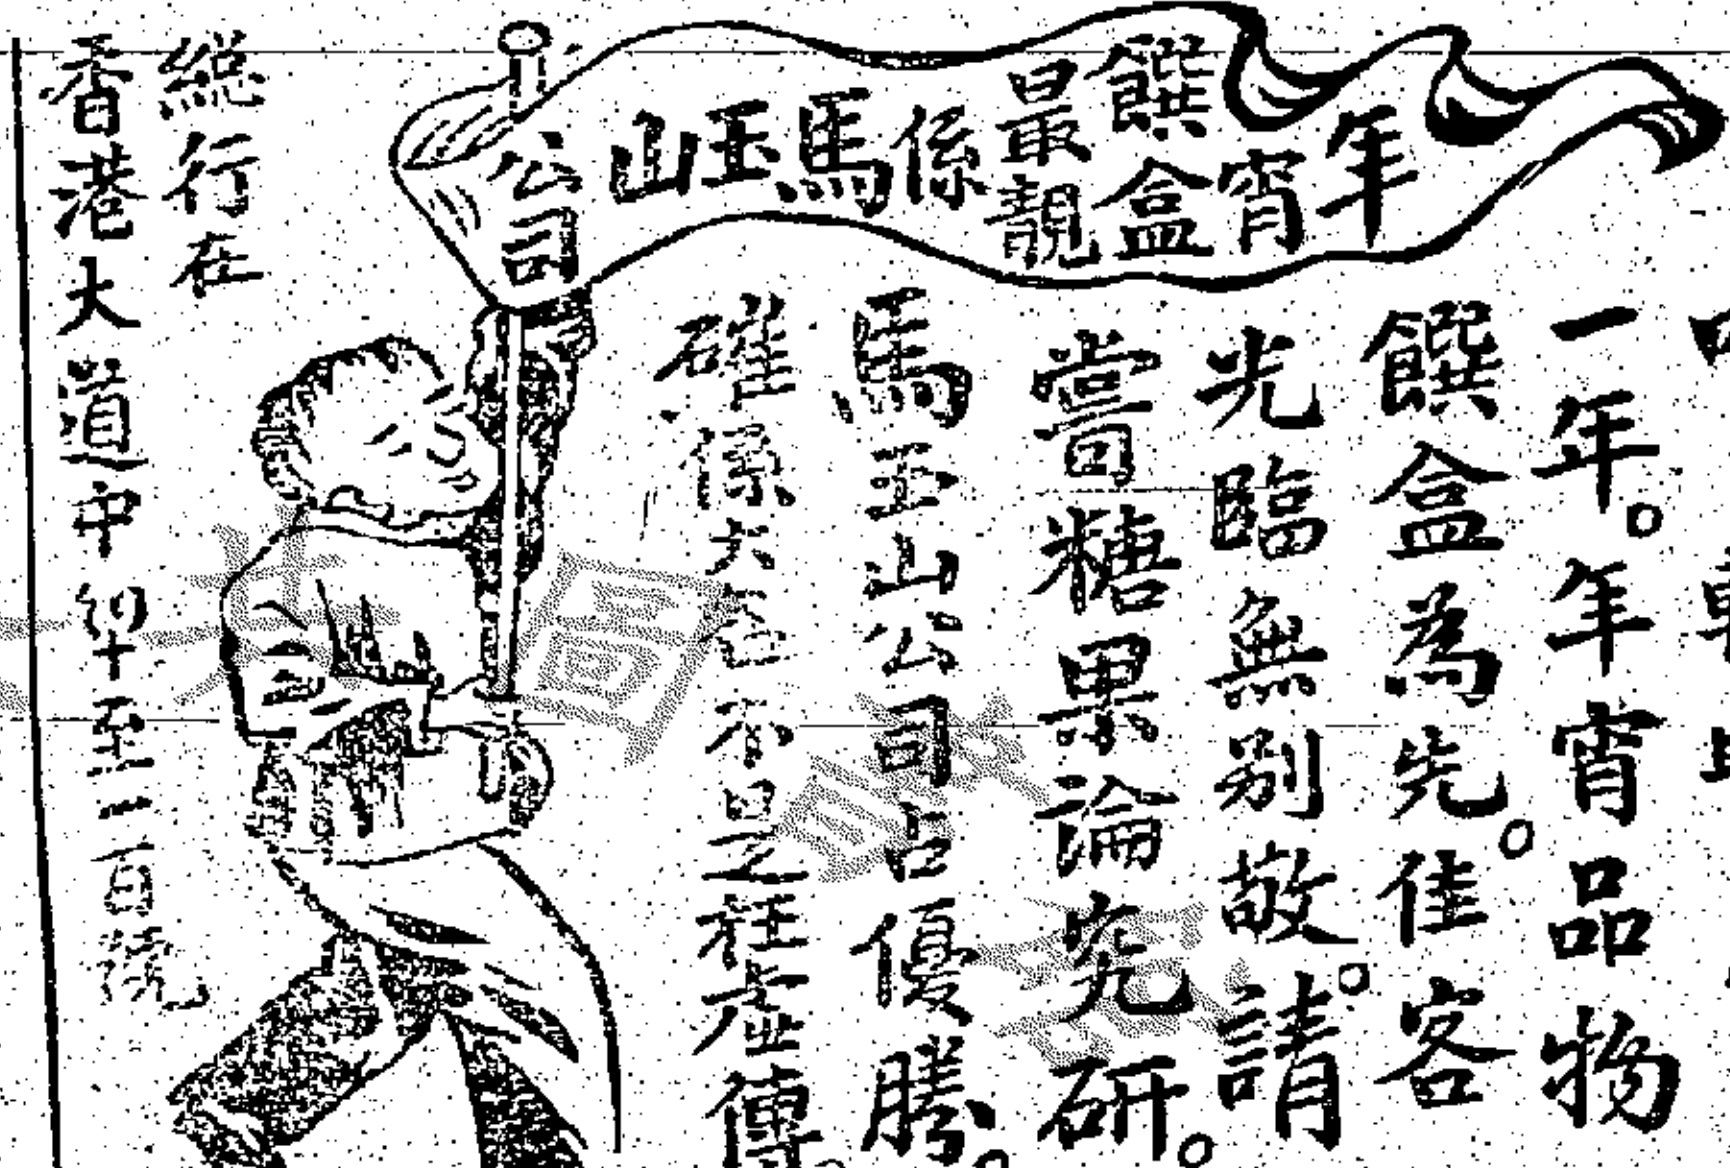 年宵饌盒最靚係馬玉山公司
一年。年宵品物
饌盒為先。佳客
光臨無别敬。請
嘗糖果論究研。
馬玉山公司占優勝。
確係大色不是枉虛傳
總行在
香港大道中四十至二百號